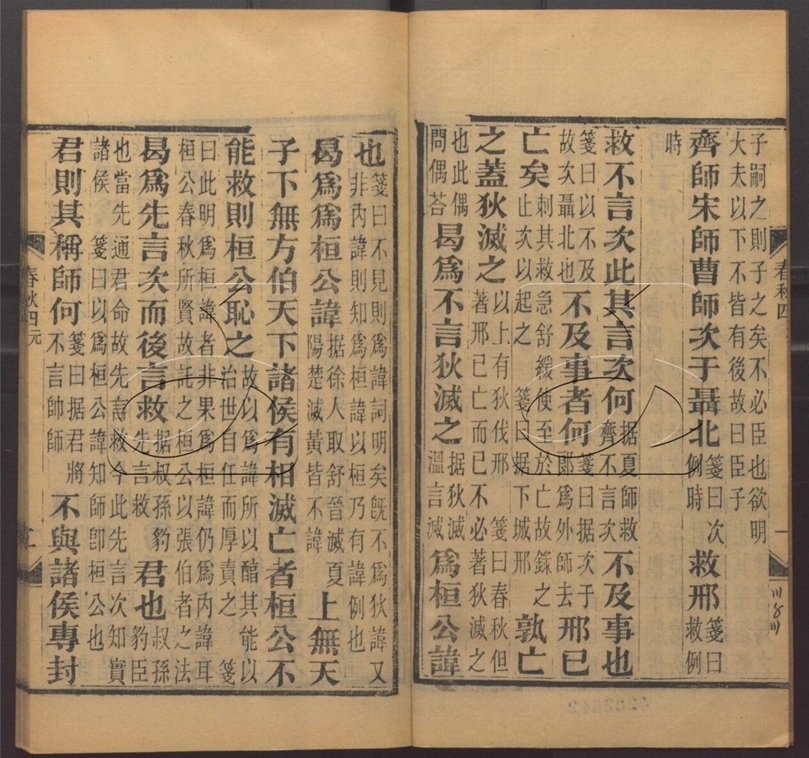 春秋四
一
子嗣之則子之矣不必臣也欲明
大夫以下不皆有後故曰臣子
齊師宋師曹師次于聶北箋曰次例時救邢箋曰救例
時
救不言次此其言次何據夏師救齊不言次不及事也
箋曰以不及故次聶北也不及事者何箋曰据次于郎爲外師去邢已
亡矣刺其救急舒緩使至於亡故録之止次以起之箋曰据下城邢孰亡
之蓋狄滅之以上有狄伐邢箋曰春秋但著邢已亡而已不必著狄滅之
也此偶問偶荅曷爲不言狄滅之據狄滅溫言滅爲桓公諱
也箋曰不見則爲諱詞明矣既不爲狄諱又非內諱則知爲桓諱以桓乃有諱例也
曷爲爲桓公諱據徐人取舒晉滅夏陽楚滅黃皆不諱上無天
子下無方伯天下諸侯有相滅亡者桓公不
能救則桓公恥之故以爲諱所以醕其能以治世自任而厚責之箋
曰此明爲桓諱者非果爲桓諱仍爲內諱耳
桓公春秋所賢故託之桓公以張伯者之法
曷爲先言次而後言救據叔孫豹先言救君也叔孫豹臣
也當先通君命故先言救今此先言次知實
諸侯箋曰以爲桓公諱知師卽桓公也
君則其稱師何箋曰据君將不言帥師不與諸侯專封
春秋四元